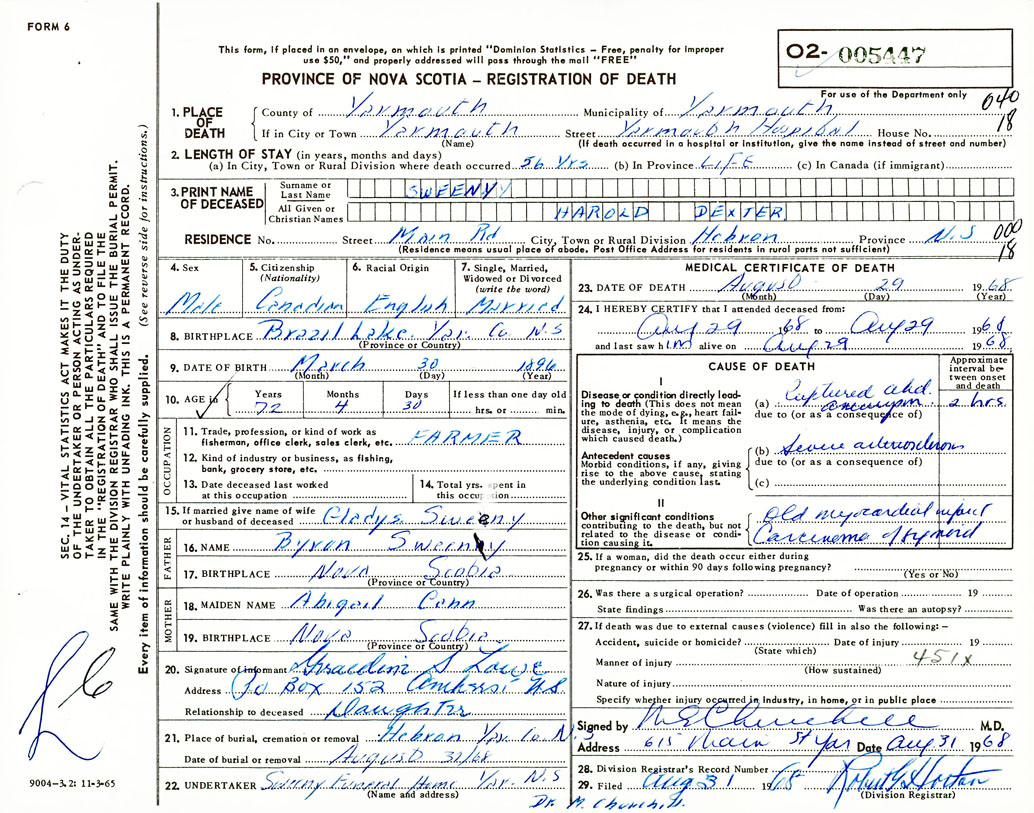 FORM 6
This form, if placed in an envelope, on which is printed "Dominion Statistics – Free, penalty for improper
use $50," and properly addressed will pass through the mail "FREE"
PROVINCE OF NOVA SCOTIA – REGISTRATION OF DEATH
02- 005447
For use of the Department only
040
18
1. PLACE OF DEATH
County of Yarmouth Municipality of Yarmouth
If in City or Town Yarmouth Street Yarmouth Hospital House No.
(Name) (If death occurred in a hospital or institution, give the name instead of street and number)
2. LENGTH OF STAY (in years, months and days)
(a) In City, Town or Rural Division where death occurred 56 Yrs (b) In Province LIFE (c) In Canada (if immigrant)
3. PRINT NAME OF DECEASED
Surname or Last Name SWEENY
All Given or Christian Names HAROLD DEXTER
RESIDENCE No. Street Main Rd City, Town or Rural Division Hebron Province N.S
(Residence means usual place of abode. Post Office Address for residents in rural parts not sufficient)
000
18
4. Sex
Male
5. Citizenship (Nationality)
Canadian
6. Racial Origin
English
7. Single, Married, Widowed or Divorced (write the word)
Married
8. BIRTHPLACE Brazil Lake. Yar. Co. N.S
(Province or Country)
9. DATE OF BIRTH March 30 1896
(Month) (Day) (Year)
10. AGE in Years Months Days If less than one day old
72 4 30 hrs. or min.
OCCUPATION
11. Trade, profession, or kind of work as
fisherman, office clerk, sales clerk, etc. FARMER
12. Kind of industry or business, as fishing,
bank, grocery store, etc.
13. Date deceased last worked
at this occupation
14. Total yrs. spent in
this occupation
15. If married give name of wife
or husband of deceased Gladys Sweeny
FATHER
16. NAME Byron Sweeny
17. BIRTHPLACE Nova Scotia
(Province or Country)
MOTHER
18. MAIDEN NAME Abigail Cann
19. BIRTHPLACE Nova Scotia.
(Province or Country)
20. Signature of informant Geraldine S Lowe
Address PO Box 152 Amherst N.S.
Relationship to deceased Daughter
21. Place of burial, cremation or removal Hebron Yar. Co. N.S
Date of burial or removal August 31/68
22. UNDERTAKER Sweeny Funeral Home Yar. N.S
(Name and address)
Dr. M. Churchill.
MEDICAL CERTIFICATE OF DEATH
23. DATE OF DEATH August 29 1968
(Month) (Day) (Year)
24. I HEREBY CERTIFY that I attended deceased from:
Aug 29 1968 to Aug 29 1968
and last saw him alive on Aug 29 1968
CAUSE OF DEATH
Approximate interval between onset and death
I
Disease or condition directly leading to death (This does not mean the mode of dying, e.g., heart failure, asthenia, etc. It means the disease, injury, or complication which caused death.)
(a) ruptured abd. aneurysm 2 hrs.
due to (or as a consequence of)
Antecedent causes
Morbid conditions, if any, giving rise to the above cause, stating the underlying condition last.
(b) Severe arteriosclerosis
due to (or as a consequence of)
(c)
II
Other significant conditions
contributing to the death, but not related to the disease or condition causing it.
Old myocardial infarct
Carcinoma of sigmoid
25. If a woman, did the death occur either during
pregnancy or within 90 days following pregnancy?
(Yes or No)
26. Was there a surgical operation? Date of operation 19
State findings Was there an autopsy?
27. If death was due to external causes (violence) fill in also the following: –
Accident, suicide or homicide? Date of injury 19
(State which)
Manner of injury 451x
(How sustained)
Nature of injury
Specify whether injury occurred in industry, in home, or in public place
Signed by M E Churchill M.D.
Address 615 Main St Yar Date Aug 31 1968
28. Division Registrar's Record Number
29. Filed Aug 31 1968 Robert G Horton
(Division Registrar)
SEC. 14 – VITAL STATISTICS ACT MAKES IT THE DUTY
OF THE UNDERTAKER OR PERSON ACTING AS UNDER-
TAKER TO OBTAIN ALL THE PARTICULARS REQUIRED
IN THE "REGISTRATION OF DEATH" AND TO FILE THE
SAME WITH THE DIVISION REGISTRAR WHO SHALL ISSUE THE BURIAL PERMIT.
WRITE PLAINLY WITH UNFADING INK. THIS IS A PERMANENT RECORD.
Every item of information should be carefully supplied. (See reverse side for instructions.)
9004-3.2: 11-3-65